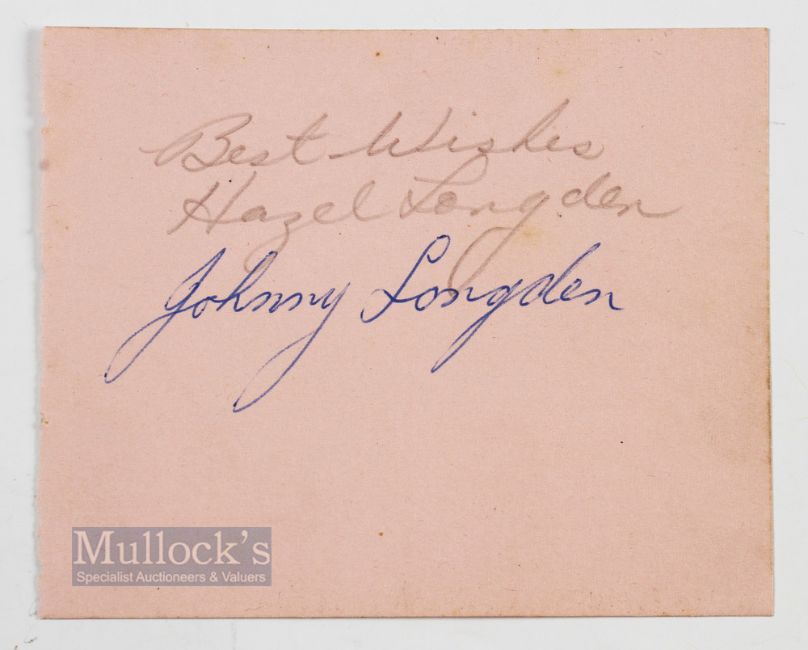 Best Wishes
Hazel Longden
Johnny Longden
Mullock's
Specialist Auctioneers & Valuers